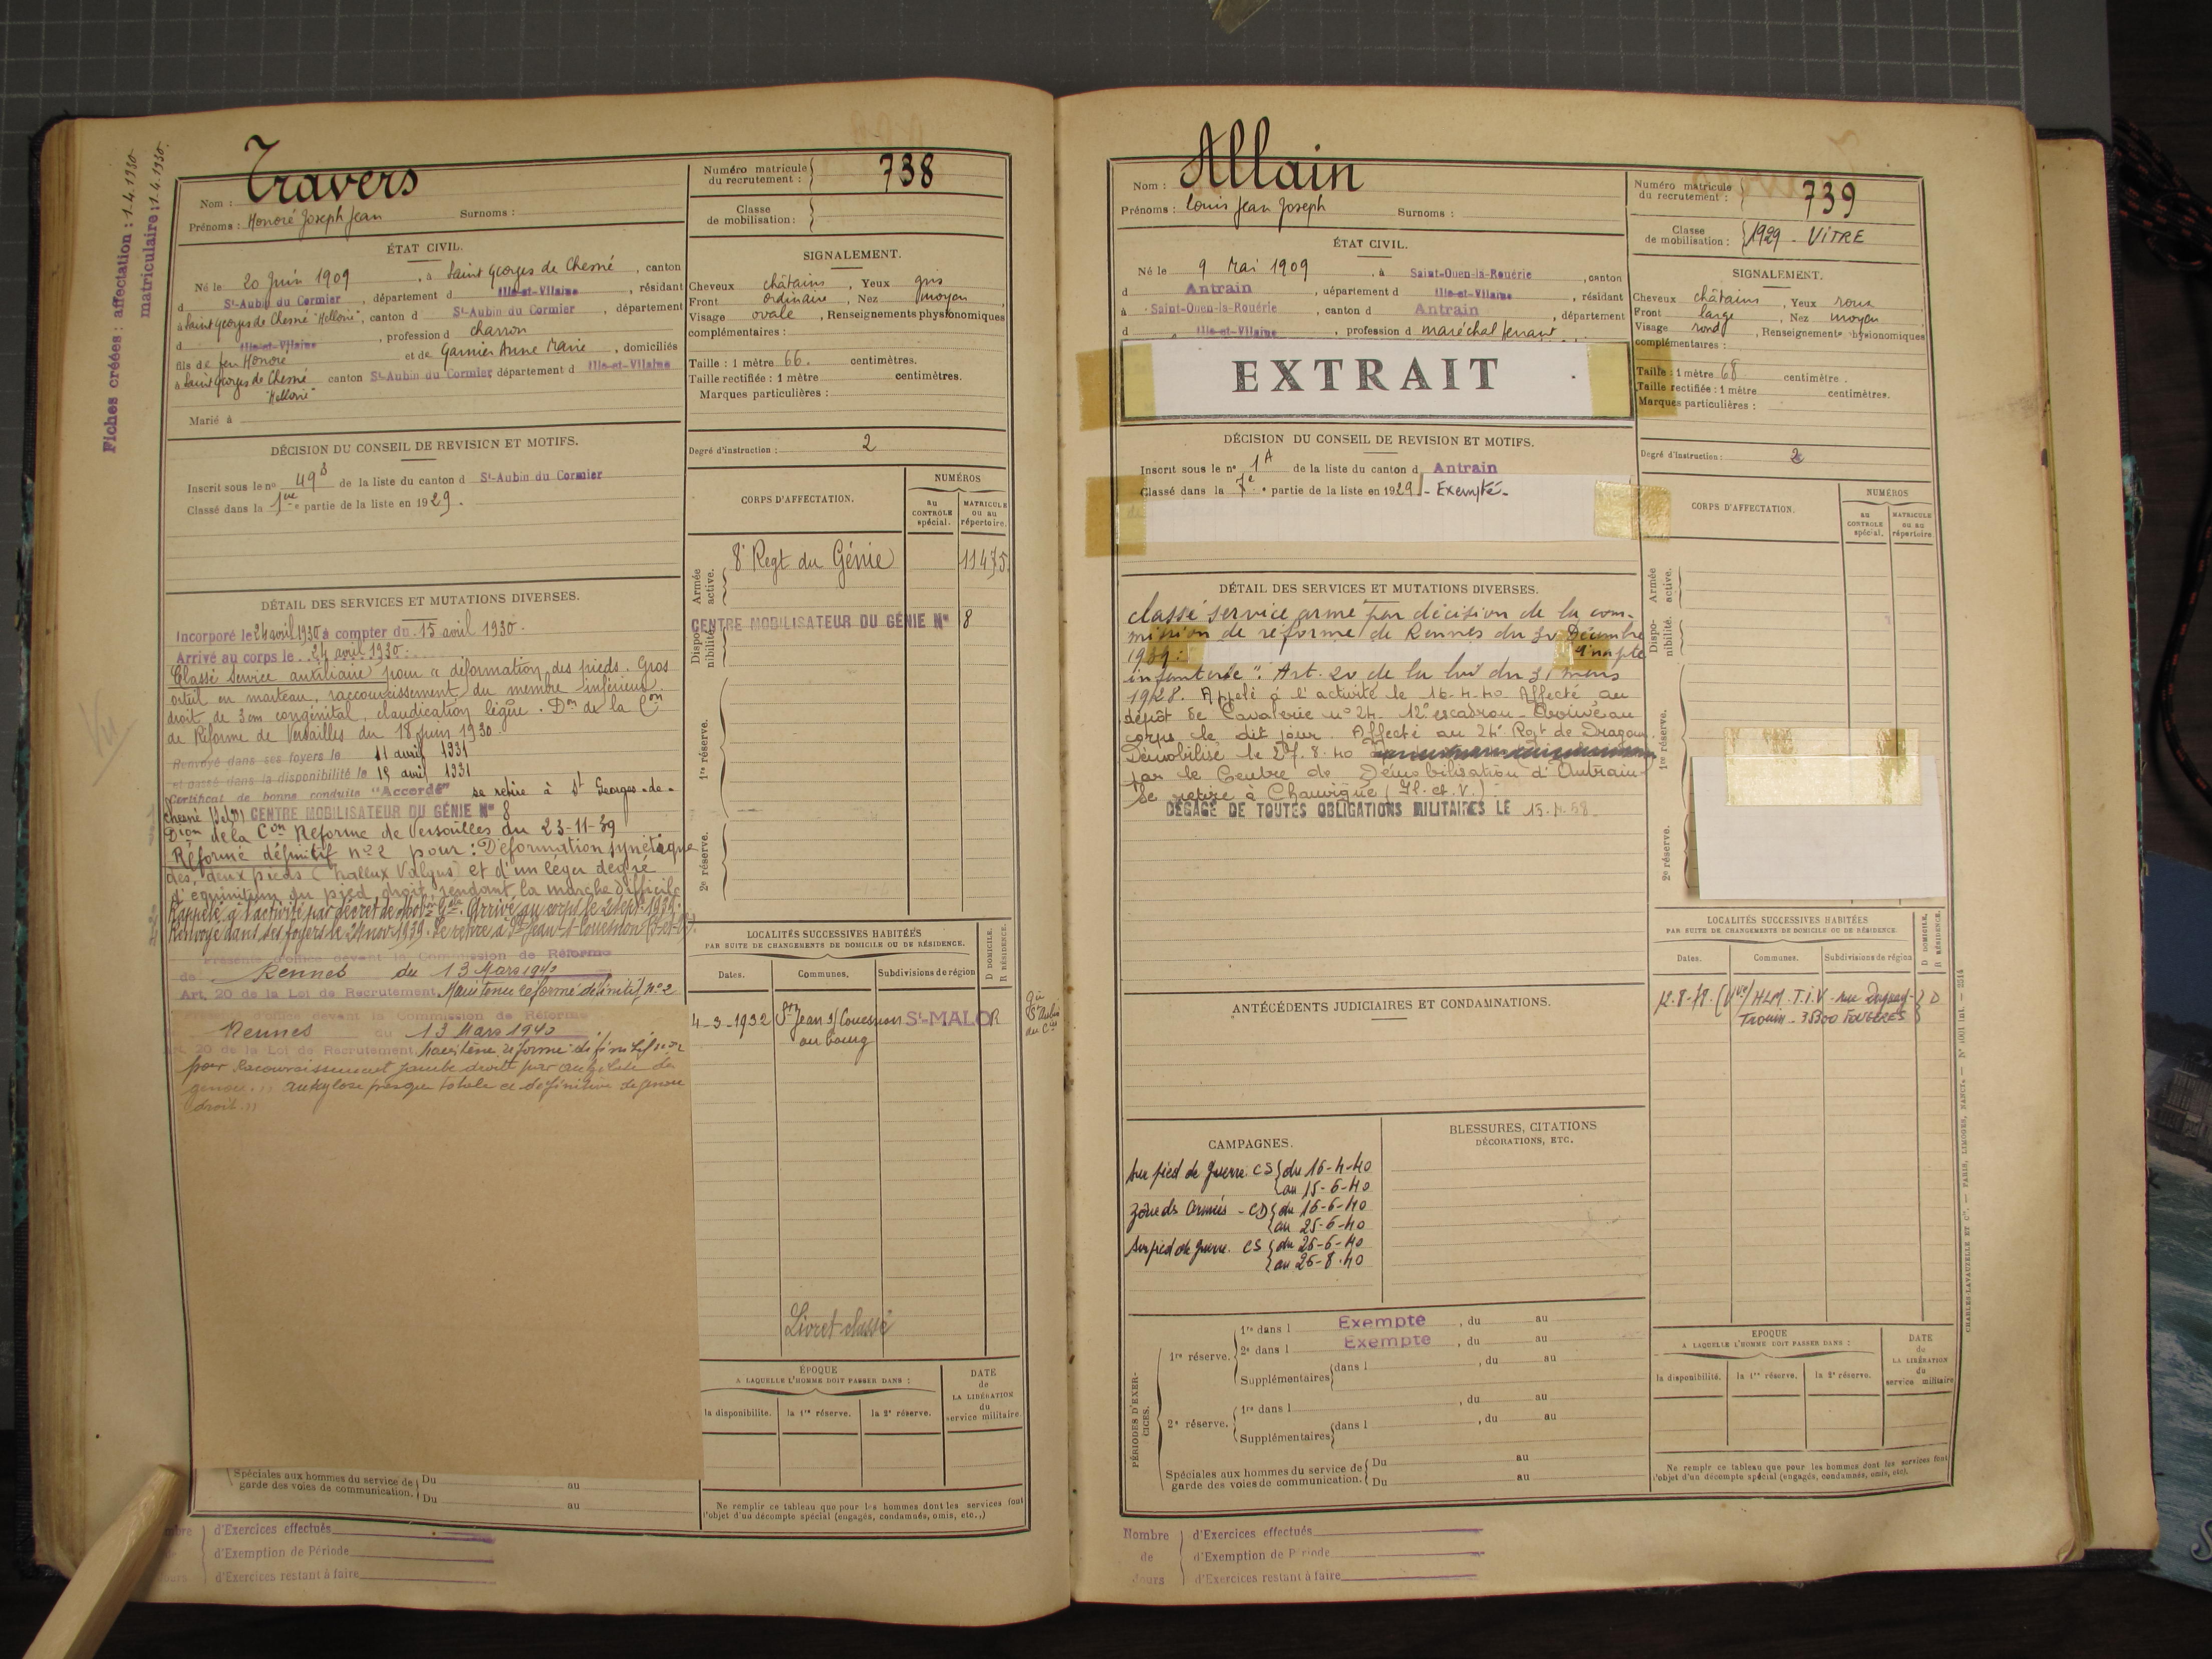 Fiches créées : affectation : 1.4.1930
matriculaire : 1.4.1930
Nom : Travers
Prénoms : Honoré Joseph Jean Surnoms :
Numéro matricule du recrutement : 738
Classe de mobilisation :
ÉTAT CIVIL.
Né le 20 Juin 1909, à Saint Georges de Chesné, canton
d St-Aubin du Cormier, département d Ille-et-Vilaine, résidant
à Saint Georges de Chesné "Hellorie", canton d St-Aubin du Cormier, département
d Ille-et-Vilaine, profession d charron
fils de feu Honoré et de Garnier Anne Marie, domiciliés
à Saint Georges de Chesné canton St-Aubin du Cormier département d Ille-et-Vilaine
"Hellorie"
Marié à
SIGNALEMENT.
Cheveux châtains, Yeux gris
Front ordinaire, Nez moyen,
Visage ovale, Renseignements physionomiques
complémentaires :
Taille : 1 mètre 66. centimètres.
Taille rectifiée : 1 mètre centimètres.
Marques particulières :
Degré d'instruction : 2
DÉCISION DU CONSEIL DE REVISION ET MOTIFS.
Inscrit sous le no 49 de la liste du canton d St-Aubin du Cormier
Classé dans la 1ère partie de la liste en 1929.
CORPS D'AFFECTATION.
NUMÉROS
au CONTROLE spécial.
MATRICULE ou au répertoire.
Armée active.
8e Regt du Génie 11475
Disponibilité.
CENTRE MOBILISATEUR DU GÉNIE No 8
1re réserve.
2e réserve.
DÉTAIL DES SERVICES ET MUTATIONS DIVERSES.
Incorporé le 24 avril 1930 à compter du 15 avril 1930.
Arrivé au corps le 24 avril 1930.
Classé service auxiliaire pour "déformation des pieds. Gros
orteil en marteau, raccourcissement du membre inférieur
droit de 3cm congénital, claudication légère. Don de la Con
de Réforme de Versailles du 18 Juin 1930.
Renvoyé dans ses foyers le 11 avril 1931
et passé dans la disponibilité le 15 avril 1931
Certificat de bonne conduite "Accordé" se retire à St Georges-de-
Chesné (I et V) CENTRE MOBILISATEUR DU GÉNIE No 8
Dion de la Con Réforme de Versailles du 23-11-39
Réformé définitif no 2 pour : Déformation
des deux pieds (hallux valgus) et d'un léger degré
d'équinisme du pied droit rendant la marche difficile
Rappelé à l'activité par décret de Mobon Gle. Arrivé au corps le 2 sept. 1939.
Renvoyé dans ses foyers le 24 nov. 1939. Se retire à St Jean s/ Couesnon
Présenté d'office devant la Commission de Réforme
de Rennes du 13 Mars 1940
Art. 20 de la Loi de Recrutement Maintenu réformé définitif no 2
Présenté d'office devant la Commission de Réforme
Rennes du 13 Mars 1940
Art. 20 de la Loi de Recrutement Maintenu réformé définitif no 2
pour Raccourcissement jambe droite par ankylose du
genou.,, ankylose presque totale et définitive du genou
droit.,,
Vu
LOCALITÉS SUCCESSIVES HABITÉES
PAR SUITE DE CHANGEMENTS DE DOMICILE OU DE RÉSIDENCE.
Dates. Communes. Subdivisions de région
D DOMICILE. R RÉSIDENCE.
4-3-1932 St Jean s/ Couesnon St-MALO R
au bourg
Livret classé
ÉPOQUE
A LAQUELLE L'HOMME DOIT PASSER DANS :
la disponibilité. la 1re réserve. la 2e réserve.
DATE de LA LIBÉRATION du service militaire
Spéciales aux hommes du service de garde des voies de communication. Du au
Du au
Ne remplir ce tableau que pour les hommes dont les services font
l'objet d'un décompte spécial (engagés, condamnés, omis, etc.,)
d'Exercices effectués
d'Exemption de Période
d'Exercices restant à faire
Nom : Allain
Prénoms : Louis Jean Joseph Surnoms :
Numéro matricule du recrutement : 739
Classe de mobilisation : 1929 - VITRE
ÉTAT CIVIL.
Né le 9 Mai 1909, à Saint-Ouen-la-Rouërie, canton
d Antrain, département d Ille-et-Vilaine, résidant
à Saint-Ouen-la-Rouërie, canton d Antrain, département
d Ille-et-Vilaine, profession d maréchal ferrant
EXTRAIT
SIGNALEMENT.
Cheveux châtains, Yeux roux
Front large, Nez moyen
Visage rond, Renseignements physionomiques
complémentaires :
Taille : 1 mètre 68 centimètre.
Taille rectifiée : 1 mètre centimètres.
Marques particulières :
Degré d'instruction : 2
DÉCISION DU CONSEIL DE REVISION ET MOTIFS.
Inscrit sous le no 1A de la liste du canton d Antrain
Classé dans la 7e partie de la liste en 1929 - Exempté -
CORPS D'AFFECTATION.
NUMÉROS
au CONTROLE spécial.
MATRICULE ou au répertoire.
Armée active.
Disponibilité.
1re réserve.
2e réserve.
DÉTAIL DES SERVICES ET MUTATIONS DIVERSES.
classé service armé par décision de la com-
mission de réforme de Rennes du Décembre
1939 : "inapte
infanterie". Art. 20 de la loi du 31 mars
1928. Appelé à l'activité le 16-4-40 Affecté au
dépôt de Cavalerie no 24 - 12e escadron - Arrivé au
corps le dit jour. Affecté au 24e Regt de Dragons.
Démobilisé le 27.8.40
par le Centre de Démobilisation d'Antrain
Se retire à Chauvigné (Il. et V.)
DÉGAGÉ DE TOUTES OBLIGATIONS MILITAIRES LE 15.4.58
ANTÉCÉDENTS JUDICIAIRES ET CONDAMNATIONS.
LOCALITÉS SUCCESSIVES HABITÉES
PAR SUITE DE CHANGEMENTS DE DOMICILE OU DE RÉSIDENCE.
Dates. Communes. Subdivisions de région
D DOMICILE. R RÉSIDENCE.
HLM - T.I.V - rue Duguay- D
Trouin - 35300 FOUGERES
CAMPAGNES.
Sur pied de guerre CS du 16-4-40
au 15-6-40
Zône des Armées - CD du 16-6-40
au 25-6-40
Sur pied de guerre. CS du 26-6-40
au 26-8-40
BLESSURES, CITATIONS
DÉCORATIONS, ETC.
PÉRIODES D'EXERCICES.
1re réserve. 1re dans l Exempte, du au
2e dans l Exempte, du au
Supplémentaires dans l, du au
, du au
2e réserve. 1re dans l, du au
Supplémentaires dans l, du au
Spéciales aux hommes du service de garde des voies de communication. Du au
Du au
ÉPOQUE
A LAQUELLE L'HOMME DOIT PASSER DANS :
la disponibilité. la 1re réserve. la 2e réserve.
DATE de LA LIBÉRATION du service militaire
Ne remplir ce tableau que pour les hommes dont les services font
l'objet d'un décompte spécial (engagés, condamnés, omis, etc).
CHARLES-LAVAUZELLE ET Cie. — PARIS, LIMOGES, NANCY.
Nombre de Jours
d'Exercices effectués
d'Exemption de Période
d'Exercices restant à faire